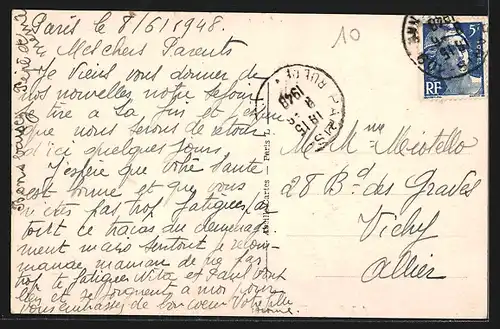 Paris le 8/6/1948.
Mes chers Parents
Je viens vous donner de
nos nouvelles notre séjour
tire a la fin et
nous serons de retour
d'ici quelques jours
J'espère que votre santé
est bonne et que vous
n'êtes pas trop fatigués par
tout ce tracas du déménage
ment mais surtout je recom
mande, maman de ne pas
trop te fatiguer Nita et Paul vont
et se joignent a moi pour
vous embrasser de bon coeur Votre fille
10
M. Mme Miotello
28 Bd des Graves
Vichy
Allier
PARIS
18 15
1948
RF
5F